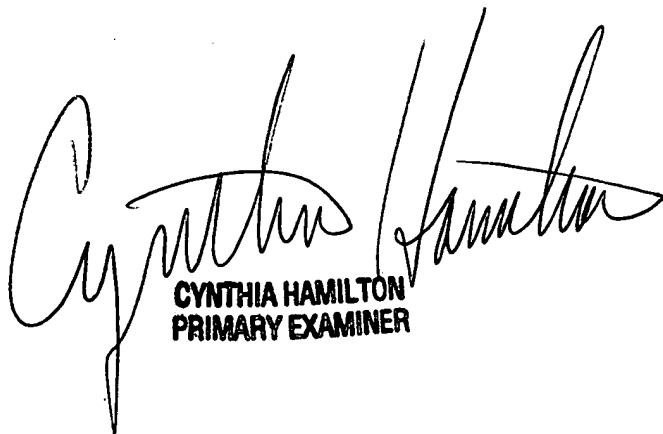 Cynthia Hamilton
CYNTHIA HAMILTON
PRIMARY EXAMINER